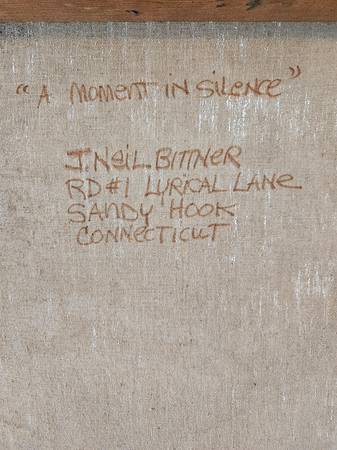 "A MOMENT IN SILENCE"
J. NEIL BITTNER
RD#1 LYRICAL LANE
SANDY HOOK
CONNECTICUT